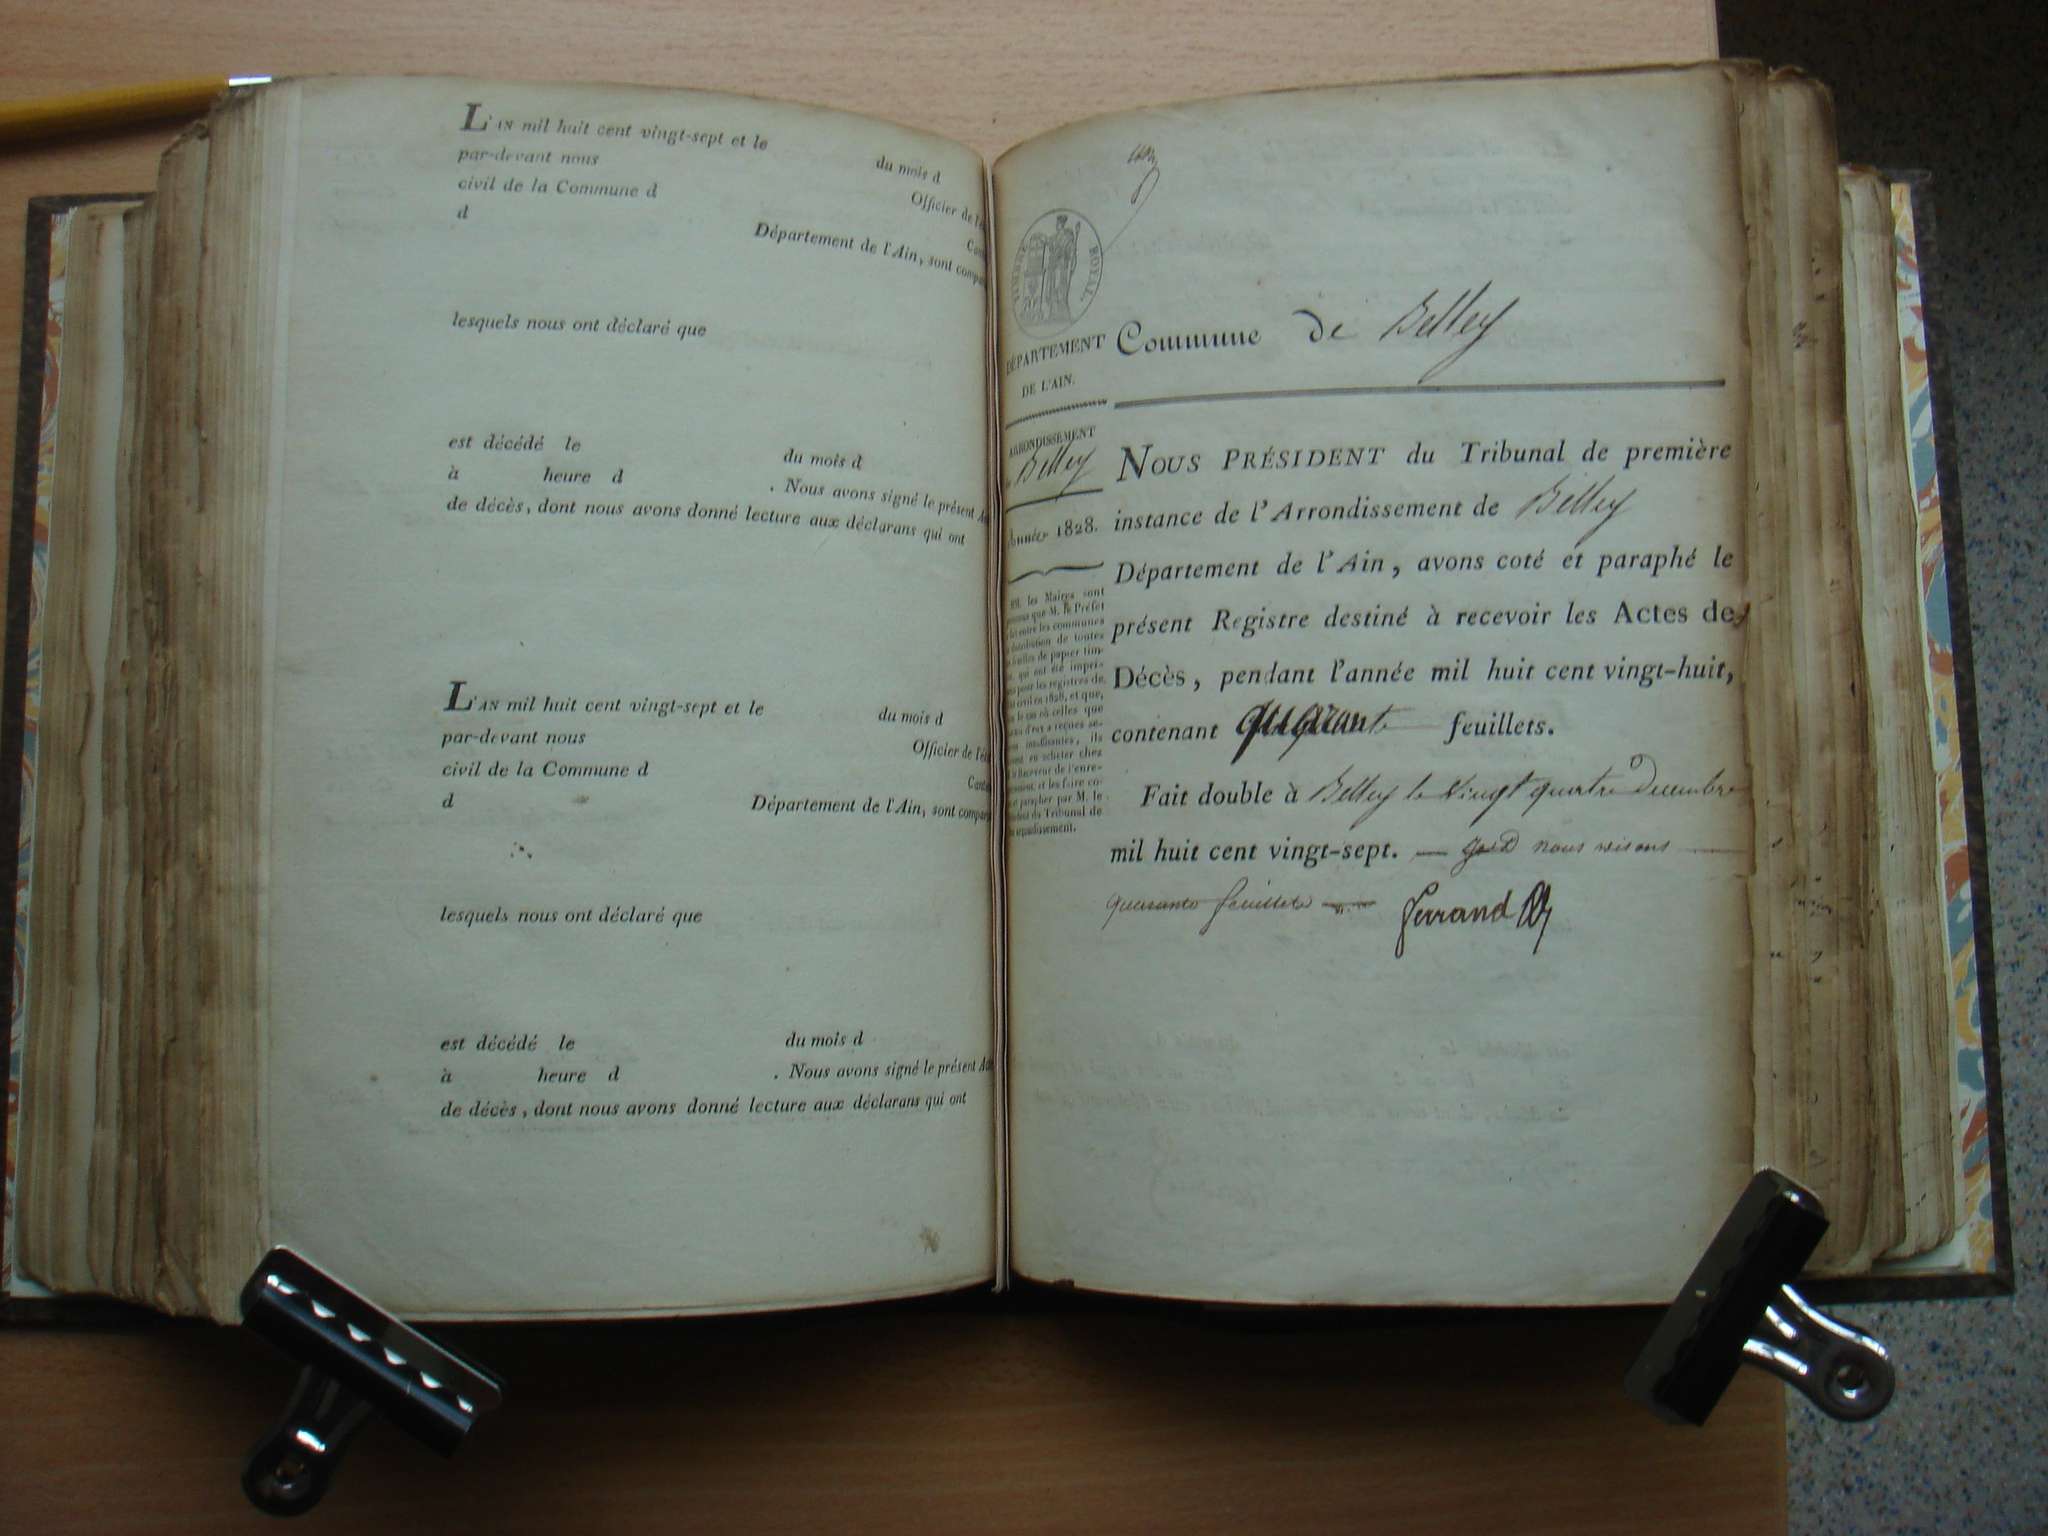 L'AN mil huit cent vingt-sept et le du mois d
par-devant nous Officier de l'é
civil de la Commune d Can
d Département de l'Ain, sont compa
lesquels nous ont déclaré que
est décédé le du mois d
à heure d . Nous avons signé le présent Ac
de décès, dont nous avons donné lecture aux déclarans qui ont
L'AN mil huit cent vingt-sept et le du mois d
par-devant nous Officier de l'é
civil de la Commune d Cant
d Département de l'Ain, sont compa
lesquels nous ont déclaré que
est décédé le du mois d
à heure d . Nous avons signé le présent Ac
de décès, dont nous avons donné lecture aux déclarans qui ont
TIMBRE ROYAL.
DÉPARTEMENT
DE L'AIN.
ARRONDISSEMENT
Belley
Année 1828.
les Maires sont
que M. le Préfet
entre les communes
distribution de toutes
feuilles de papier tim-
qui ont été impri-
pour les registres de
1828, et que,
le cas où celles que
d'eux a reçues se-
insuffisantes, ils
en acheter chez
le Receveur de l'enre-
et les faire co-
parapher par M. le
du Tribunal de
Commune de Belley
NOUS PRÉSIDENT du Tribunal de première
instance de l'Arrondissement de Belley
Département de l'Ain, avons coté et paraphé le
présent Registre destiné à recevoir les Actes de
Décès, pendant l'année mil huit cent vingt-huit,
contenant quarante feuillets.
Fait double à Belley le vingt quatre Decembre
mil huit cent vingt-sept. — nous disons —
quarante feuillets — ferrand